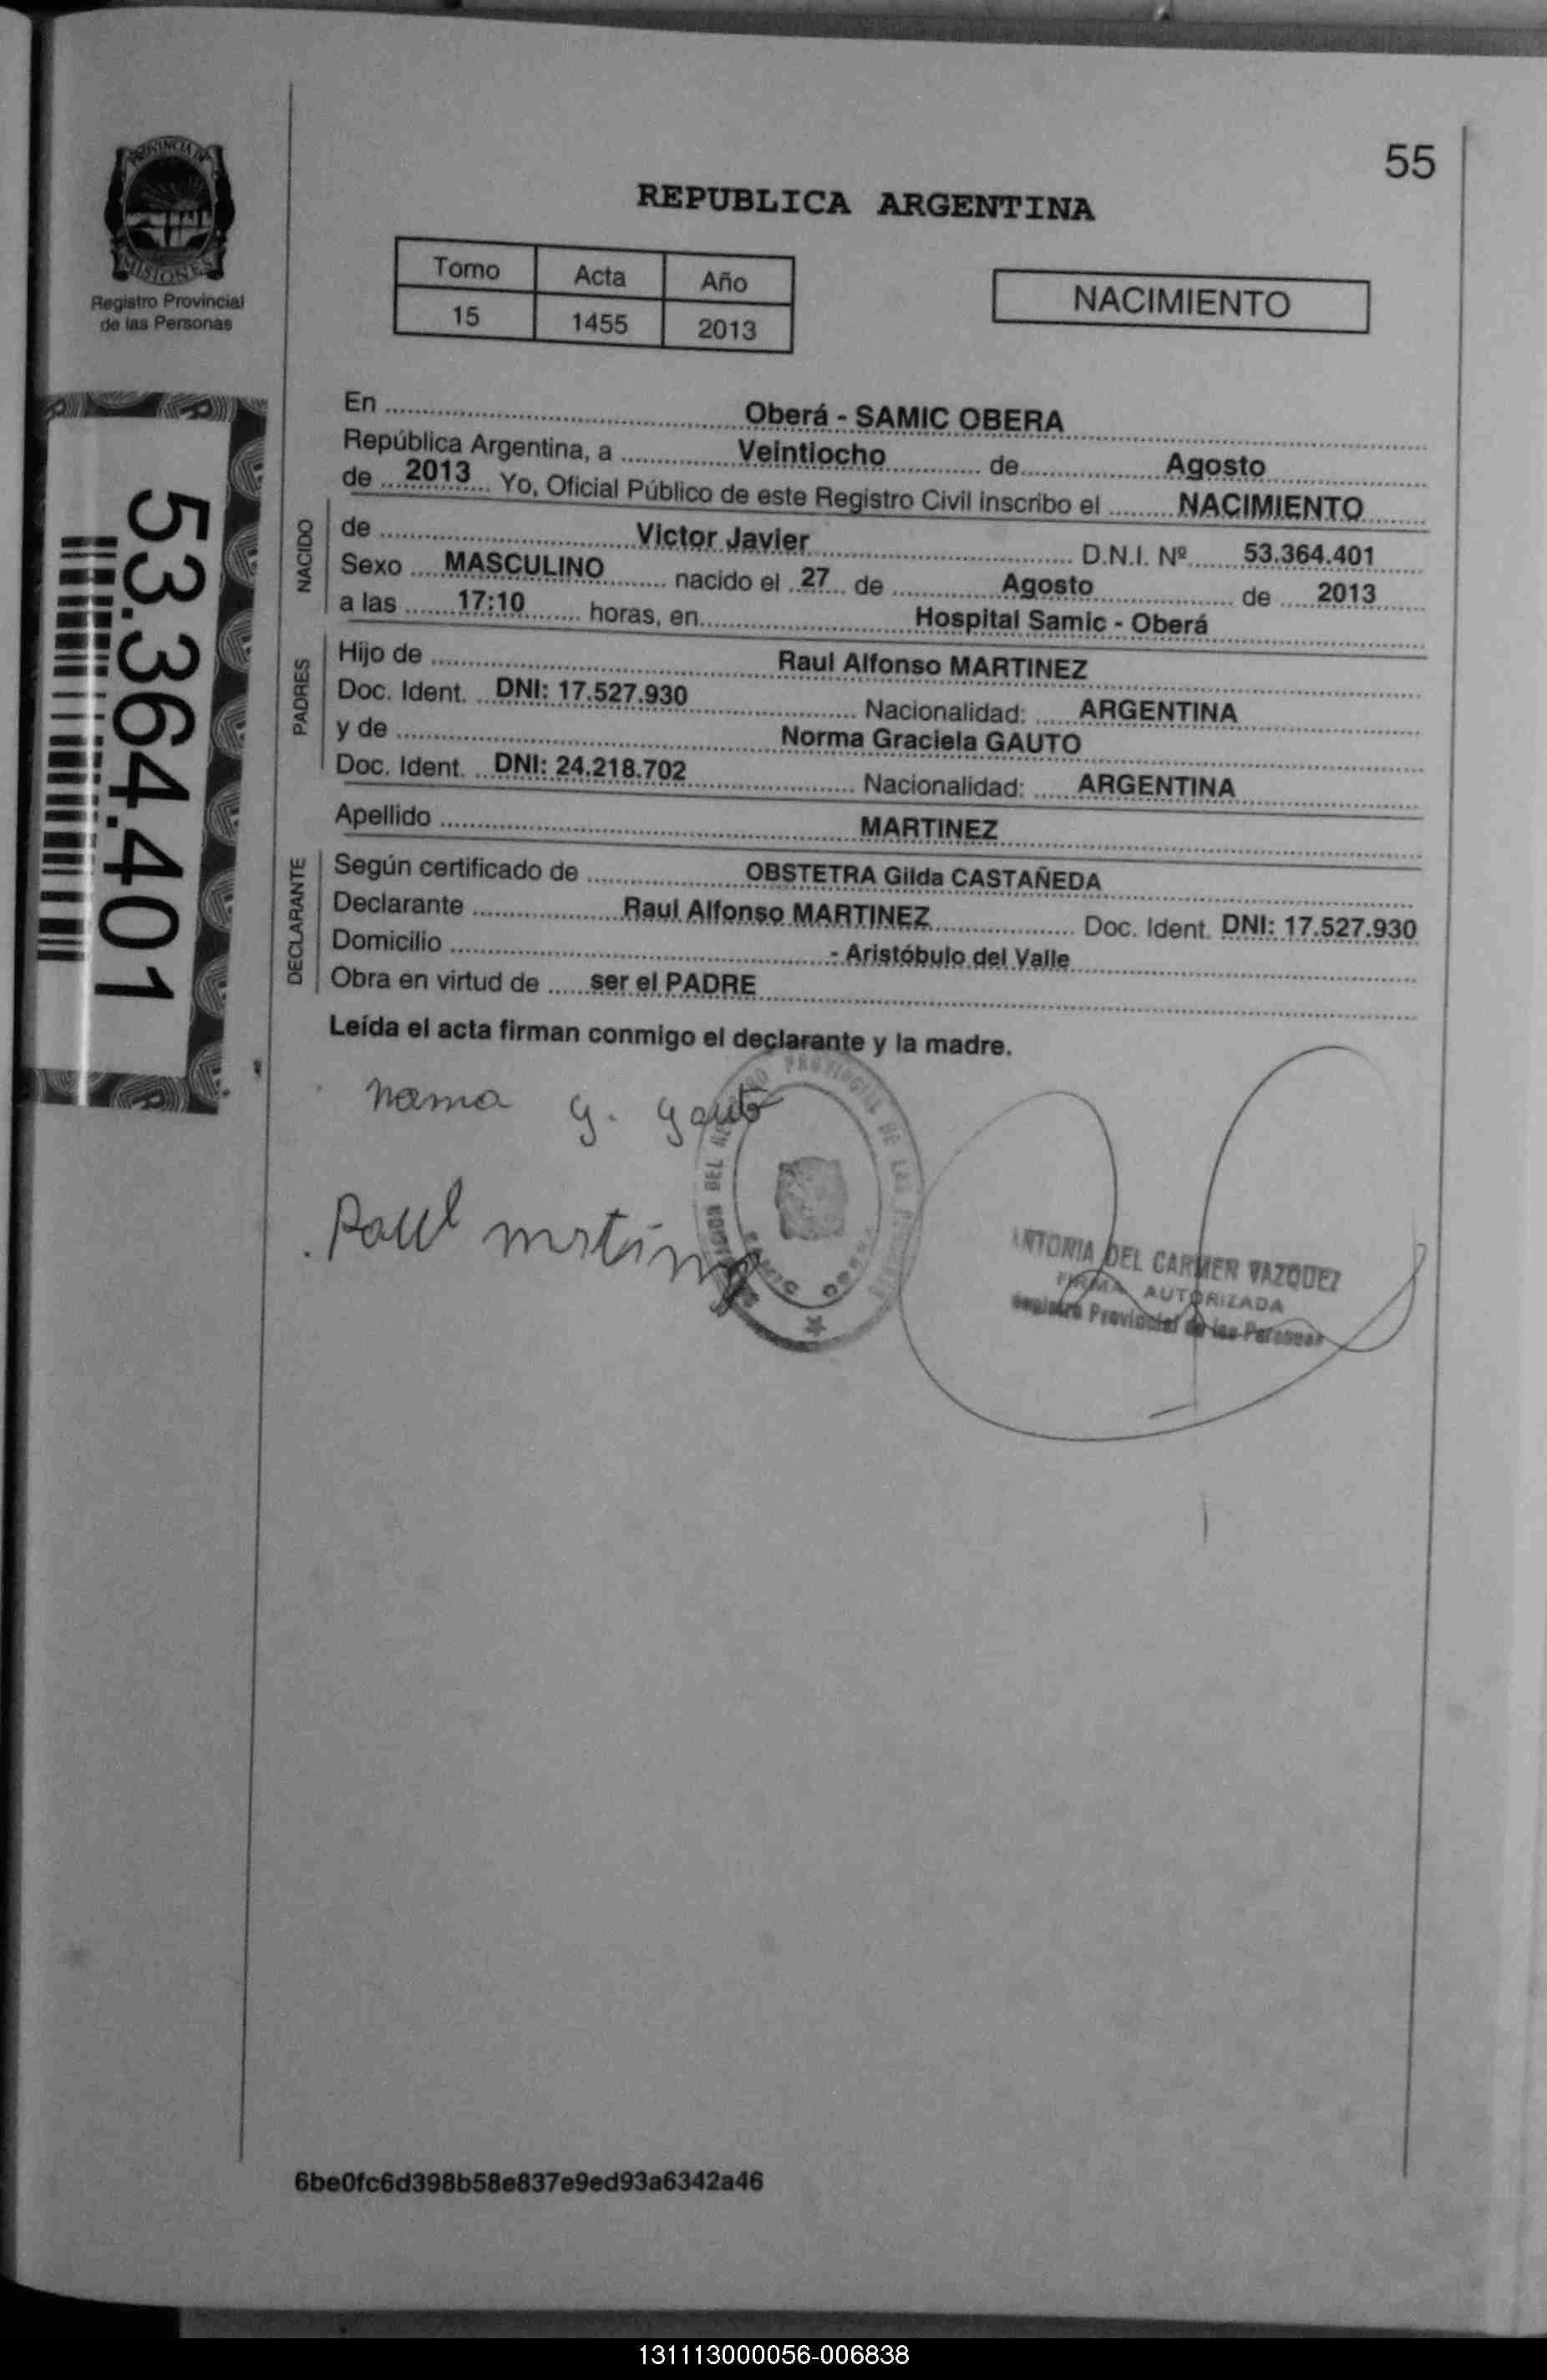 55
PROVINCIA DE
MISIONES
Registro Provincial
de las Personas
REPUBLICA ARGENTINA
Tomo Acta Año
15 1455 2013
NACIMIENTO
53.364.401
En Oberá - SAMIC OBERA
República Argentina, a Veintiocho de Agosto
de 2013 Yo, Oficial Público de este Registro Civil inscribo el NACIMIENTO
NACIDO
de Victor Javier D.N.I. Nº 53.364.401
Sexo MASCULINO nacido el 27 de Agosto de 2013
a las 17:10 horas, en Hospital Samic - Oberá
PADRES
Hijo de Raul Alfonso MARTINEZ
Doc. Ident. DNI: 17.527.930 Nacionalidad: ARGENTINA
y de Norma Graciela GAUTO
Doc. Ident. DNI: 24.218.702 Nacionalidad: ARGENTINA
Apellido MARTINEZ
DECLARANTE
Según certificado de OBSTETRA Gilda CASTAÑEDA
Declarante Raul Alfonso MARTINEZ Doc. Ident. DNI: 17.527.930
Domicilio - Aristóbulo del Valle
Obra en virtud de ser el PADRE
Leída el acta firman conmigo el declarante y la madre.
G. Gauto
Raul
PROVINCIAL DE LAS
ANTONIA DEL CARMEN VAZQUEZ
FIRMA AUTORIZADA
Registro Provincial de las Personas
6be0fc6d398b58e837e9ed93a6342a46
131113000056-006838